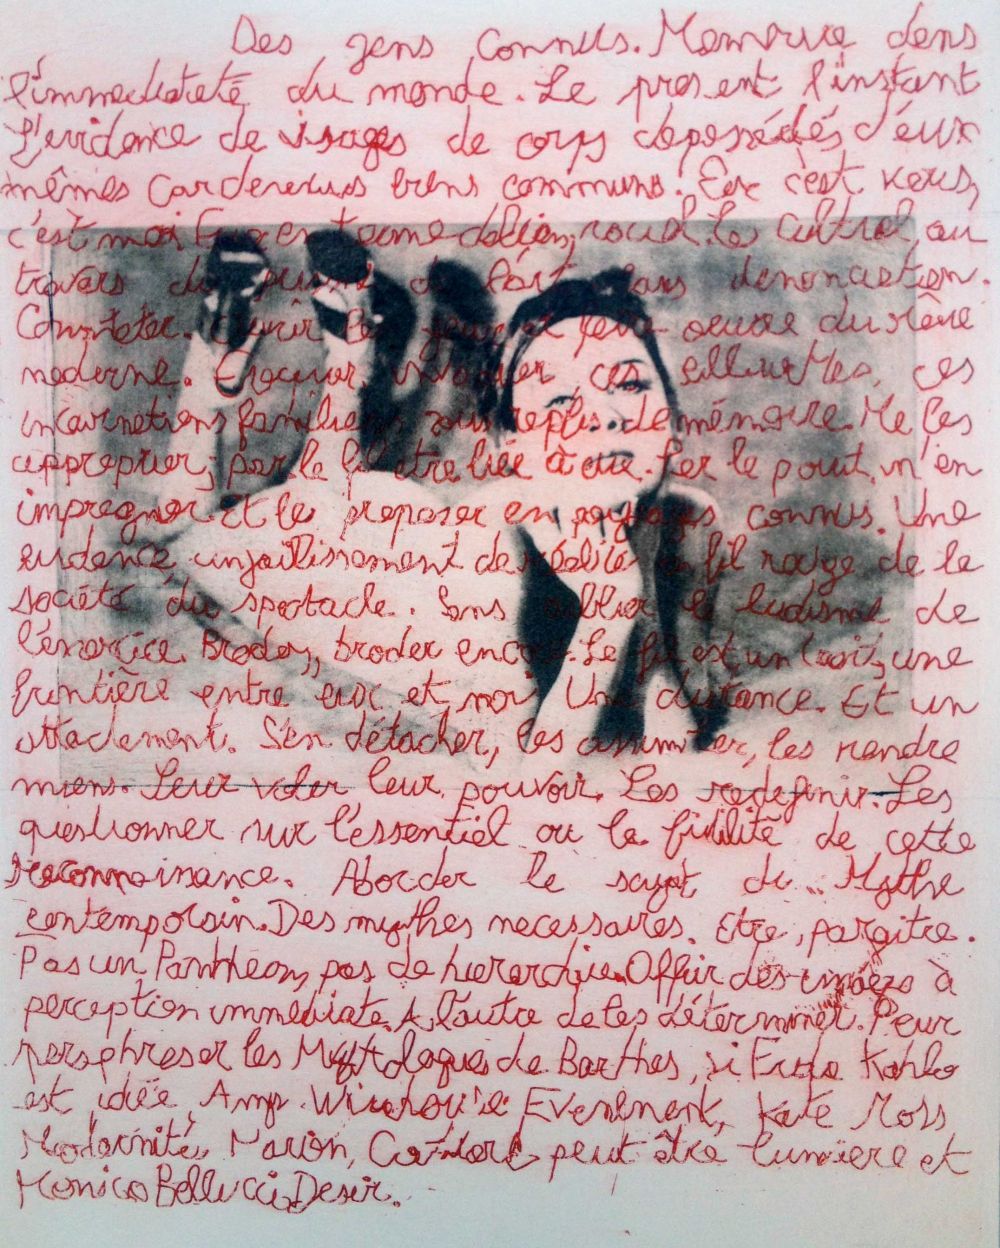 Des gens connus. Memoire dans
l'immediateté du monde. Le present l'instant
L'evidence de visages de corps depossédés d'eux
mêmes Car devenus biens communs. Eux c'est vous,
c'est moi social. Le Culturel, au
travers du de l'art sans denonciation.
Constater. Ouvrir les yeux et faire oeuvre du rêve
moderne. Evoquer, ces silhouettes, ces
incarnations familières aux replis de mémoire. Me les
approprier, par le fil être liée à eux. Par le point, m'en
impregner et les proposer en connus. Une
evidence un jaillissement de réalité en fil rouge de la
société du spectacle. Sans oublier le ludisme de
l'exercice. Broder, broder encore. Le fil est un lien, une
frontière entre eux et moi Une distance. Et un
attachement. S'en détacher, les assimiler, les rendre
miens. Leur voler leur pouvoir. Les redefinir. Les
questionner sur l'essentiel ou la futilité de cette
reconnaissance. Aborder le sujet du Mythe
contemporain. Des mythes necessaires. Etre, paraitre.
Pas un Panthéon, pas de hierarchie. Offrir des images à
perception immédiate. A l'autre de les déterminer. Pour
paraphraser les Mythologies de Barthes, si Frida Kahlo
est idée, Amy Winehouse Evenement, Kate Moss
Modernité, Marion Cotillard peut être lumière et
Monica Bellucci, Desir.